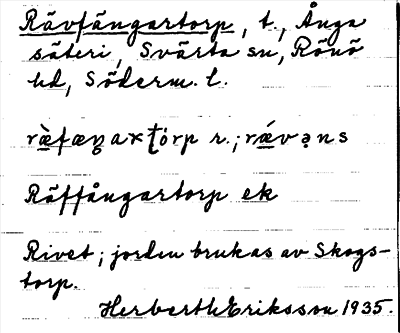 Rävfängartorp, t., Ånga
säteri, Svärta sn, Rönö
hd, Söderm. l.
Räffångartorp ek
Rivet; jorden brukas av Skogs-
torp.
Herberth Eriksson 1935.